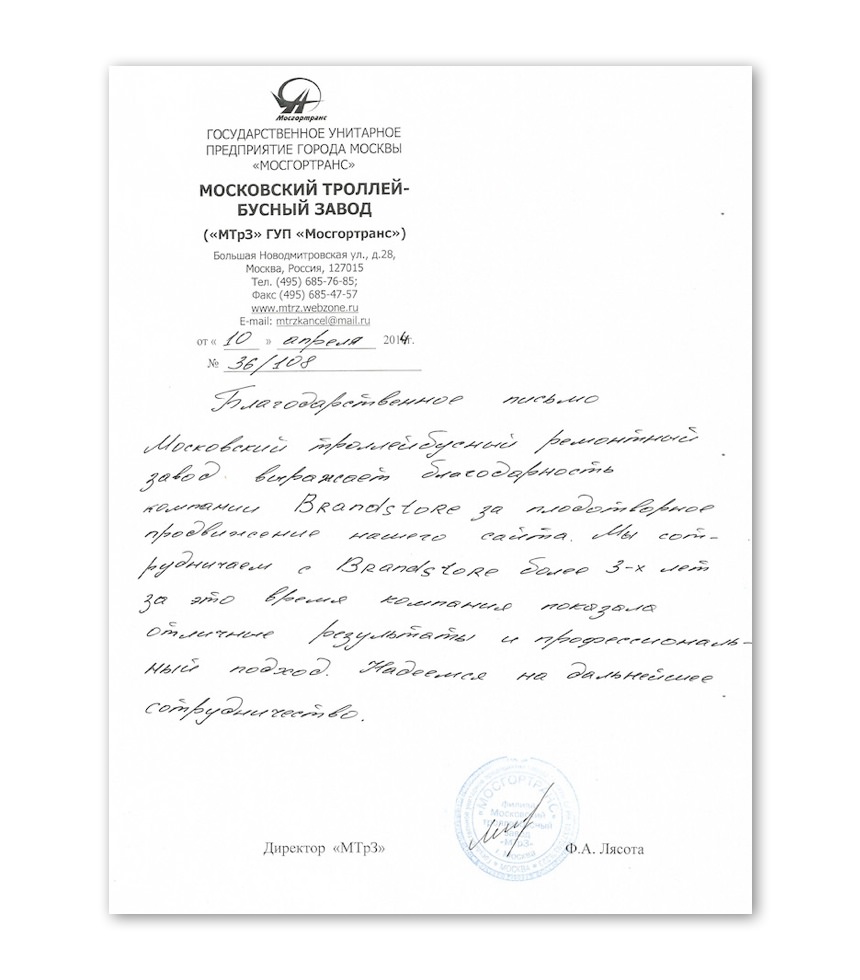 Мосгортранс
ГОСУДАРСТВЕННОЕ УНИТАРНОЕ
ПРЕДПРИЯТИЕ ГОРОДА МОСКВЫ
«МОСГОРТРАНС»
МОСКОВСКИЙ ТРОЛЛЕЙ-
БУСНЫЙ ЗАВОД
(«МТрЗ» ГУП «Мосгортранс»)
Большая Новодмитровская ул., д.28,
Москва, Россия, 127015
Тел. (495) 685-76-85;
Факс (495) 685-47-57
www.mtrz.webzone.ru
E-mail: mtrzkancel@mail.ru
от « 10 » апреля 2014г.
№ 36/108
Благодарственное письмо
Московский троллейбусный ремонтный
завод выражает благодарность
компании Brandstore за плодотворное
продвижение нашего сайта. Мы сот-
рудничаем с Brandstore более 3-х лет
за это время компания показала
отличные результаты и профессиональ-
ный подход. Надеемся на дальнейшее
сотрудничество.
«МОСГОРТРАНС»
филиал
Московский
троллейбусный
завод
«МТрЗ»
г. Москва
МОСКВА
Директор «МТрЗ» Ф.А. Лясота